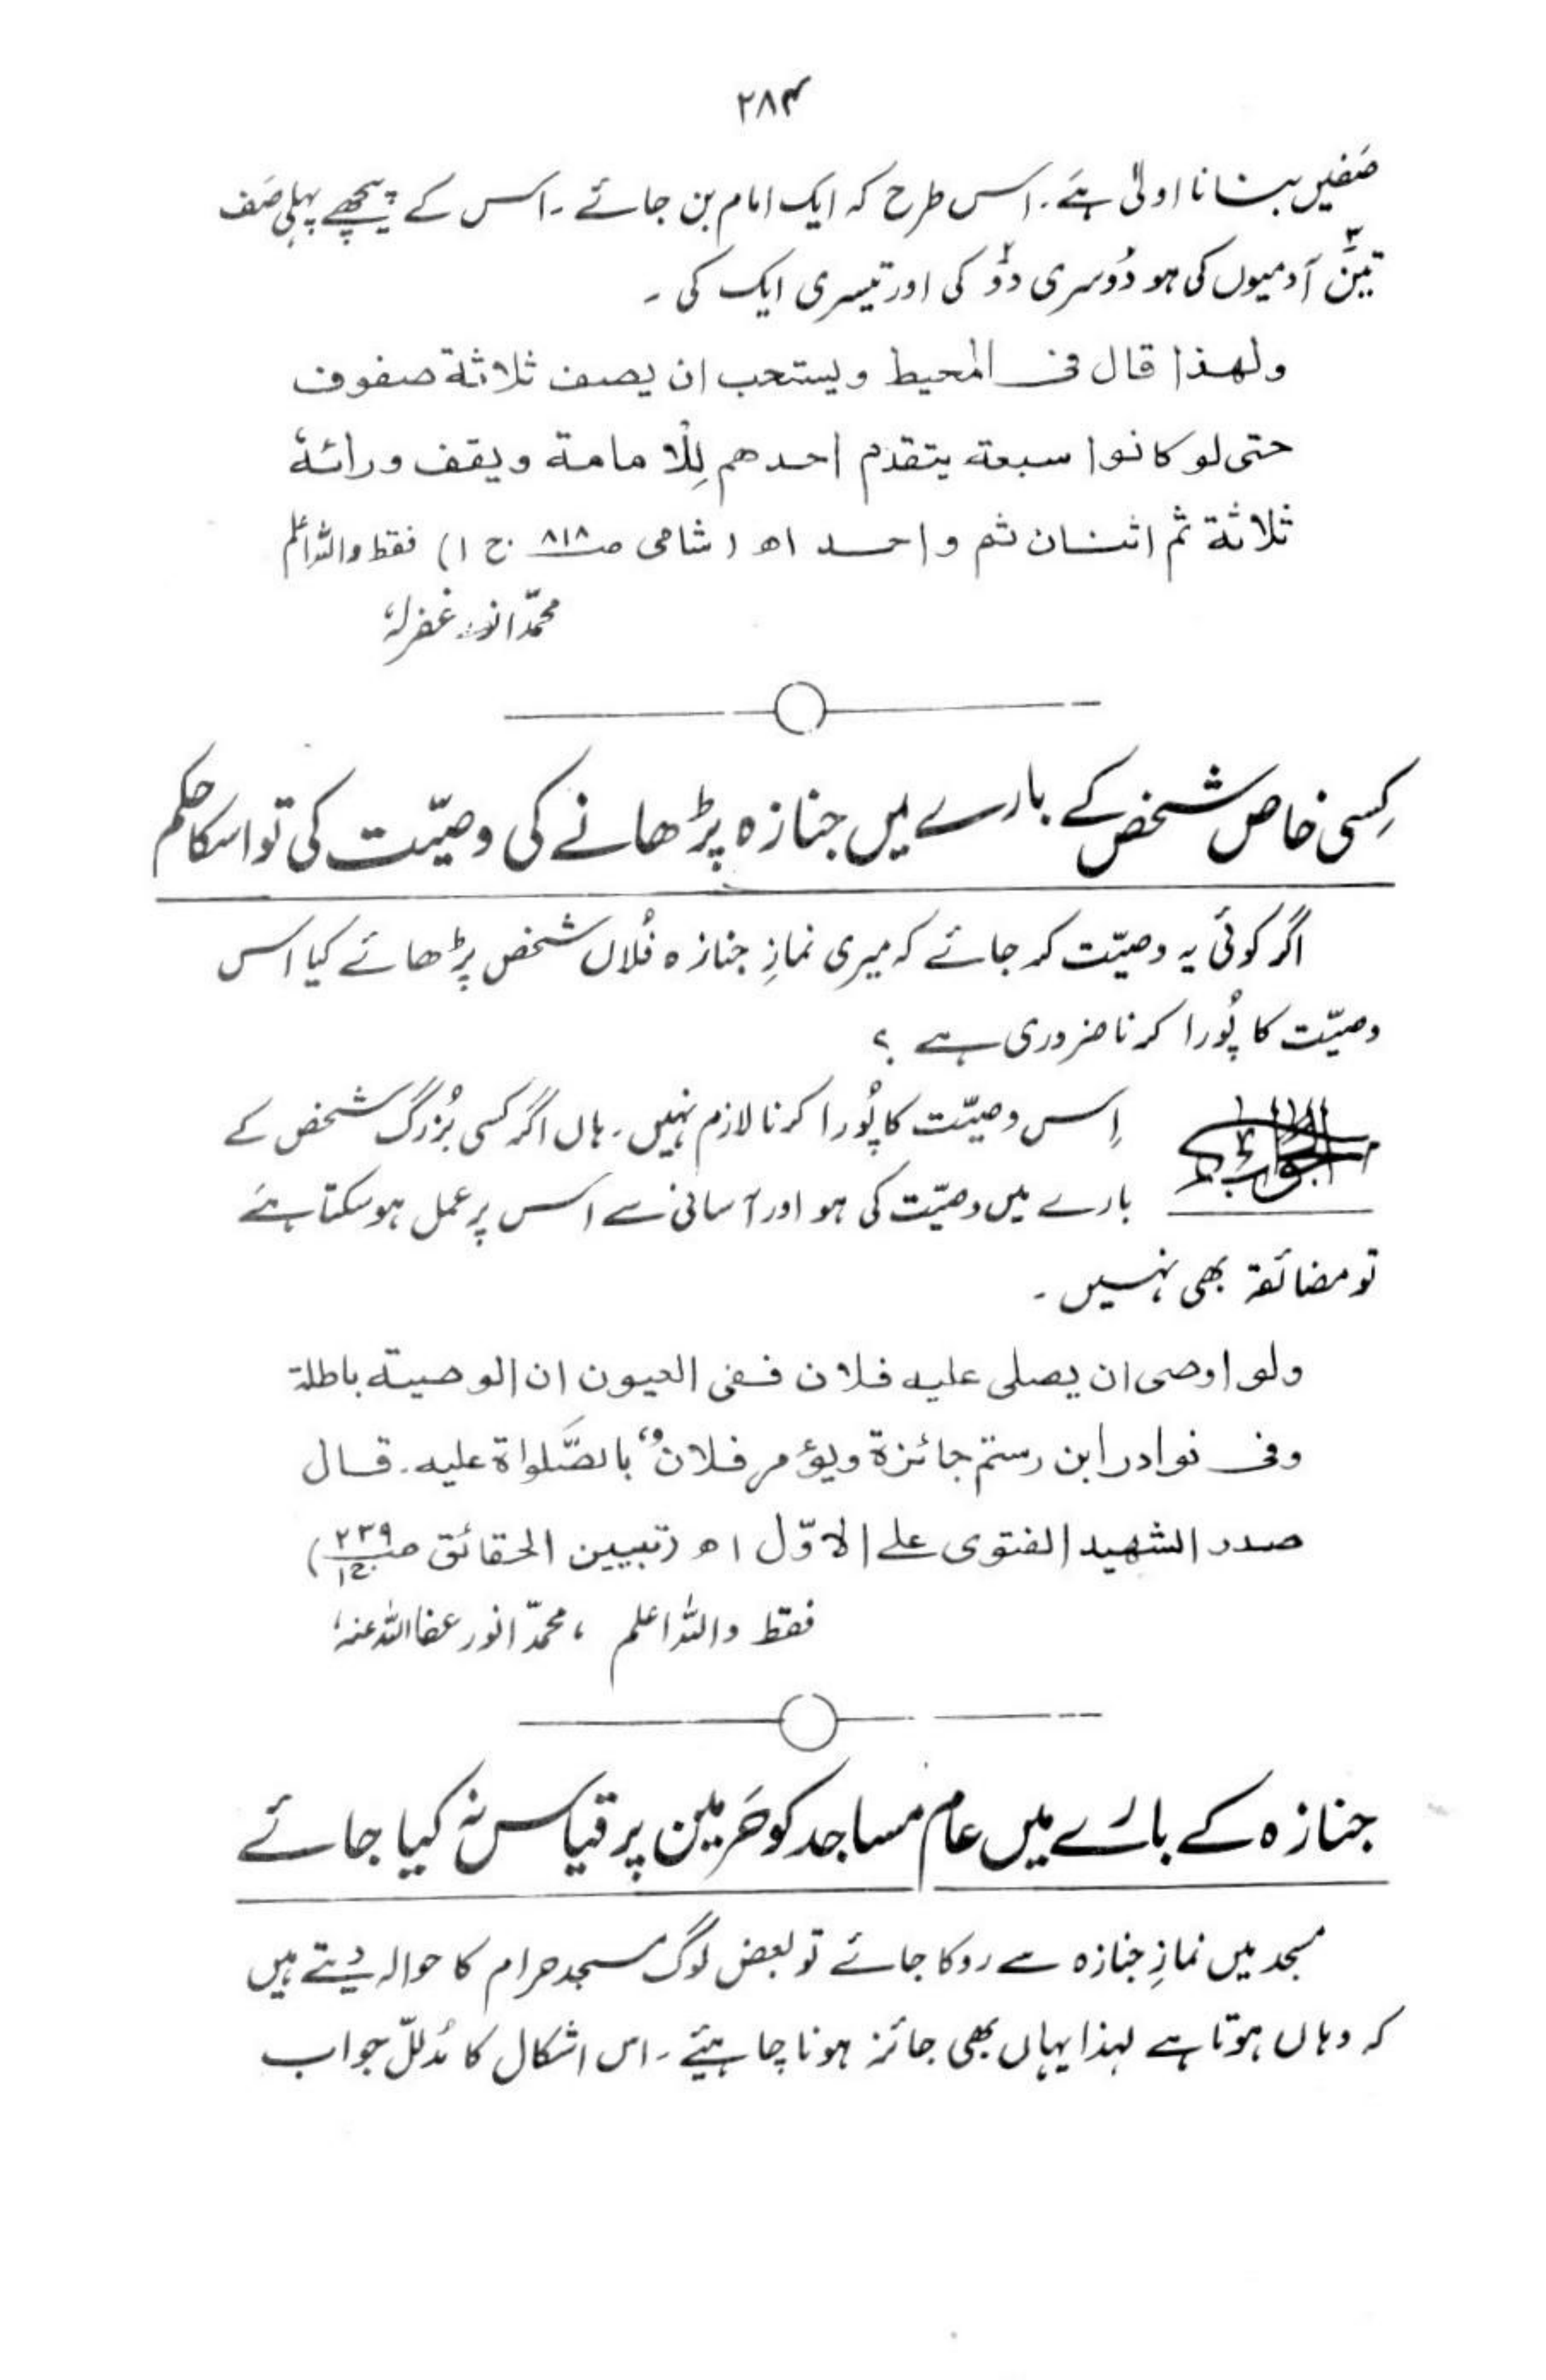 ۲۸۴
صَفیں بنانا اولیٰ ہے۔ اس طرح کہ ایک امام بن جائے۔ اس کے پیچھے پہلی صَف
تین۳ آدمیوں کی ہو دُوسری دو۲ کی اور تیسری ایک کی ۔
ولهذا قال فی المحیط ویستحب ان یصف ثلاثة صفوف
حتی لو کانوا سبعة یتقدم احدهم لِلْامامة ویقف ورائهٗ
ثلاثة ثم اثنان ثم واحد اھ (شامی صـ ۸۱۸ ج ۱) فقط واللہ اعلم
محمّد انور غفرلہٗ
کِسی خاص شخص کے بارے میں جنازہ پڑھانے کی وصیّت کی تو اسکا حکم
اگر کوئی یہ وصیّت کر جائے کہ میری نمازِ جنازہ فُلاں شخص پڑھائے کیا اس
وصیّت کا پُورا کرنا ضروری ہے ؟
الجواب
اِس وصیّت کا پُورا کرنا لازم نہیں۔ ہاں اگر کسی بُزرگ شخص کے
بارے میں وصیّت کی ہو اور آسانی سے اس پر عمل ہو سکتا ہے
تو مضائقہ بھی نہیں ۔
ولو اوصی ان یصلی علیه فلان ففی العیون ان الوصیة باطلة
وفی نوادر ابن رستم جائزة ویؤمر فلانٌ بالصَّلواة علیه۔ قال
صدر الشهید الفتوی علے الاوّل اھ (تبیین الحقائق صـ ۲۳۹ ج۱)
فقط واللہ اعلم ، محمّد انور عفا اللہ عنہٗ
جنازہ کے بارے میں عام مساجد کو حَرمین پر قیاس نہ کیا جائے
مسجد میں نمازِ جنازہ سے روکا جائے تو بعض لوگ مسجد حرام کا حوالہ دیتے ہیں
کہ وہاں ہوتا ہے لہذا یہاں بھی جائز ہونا چاہیئے ۔ اس اشکال کا مُدللّ جواب